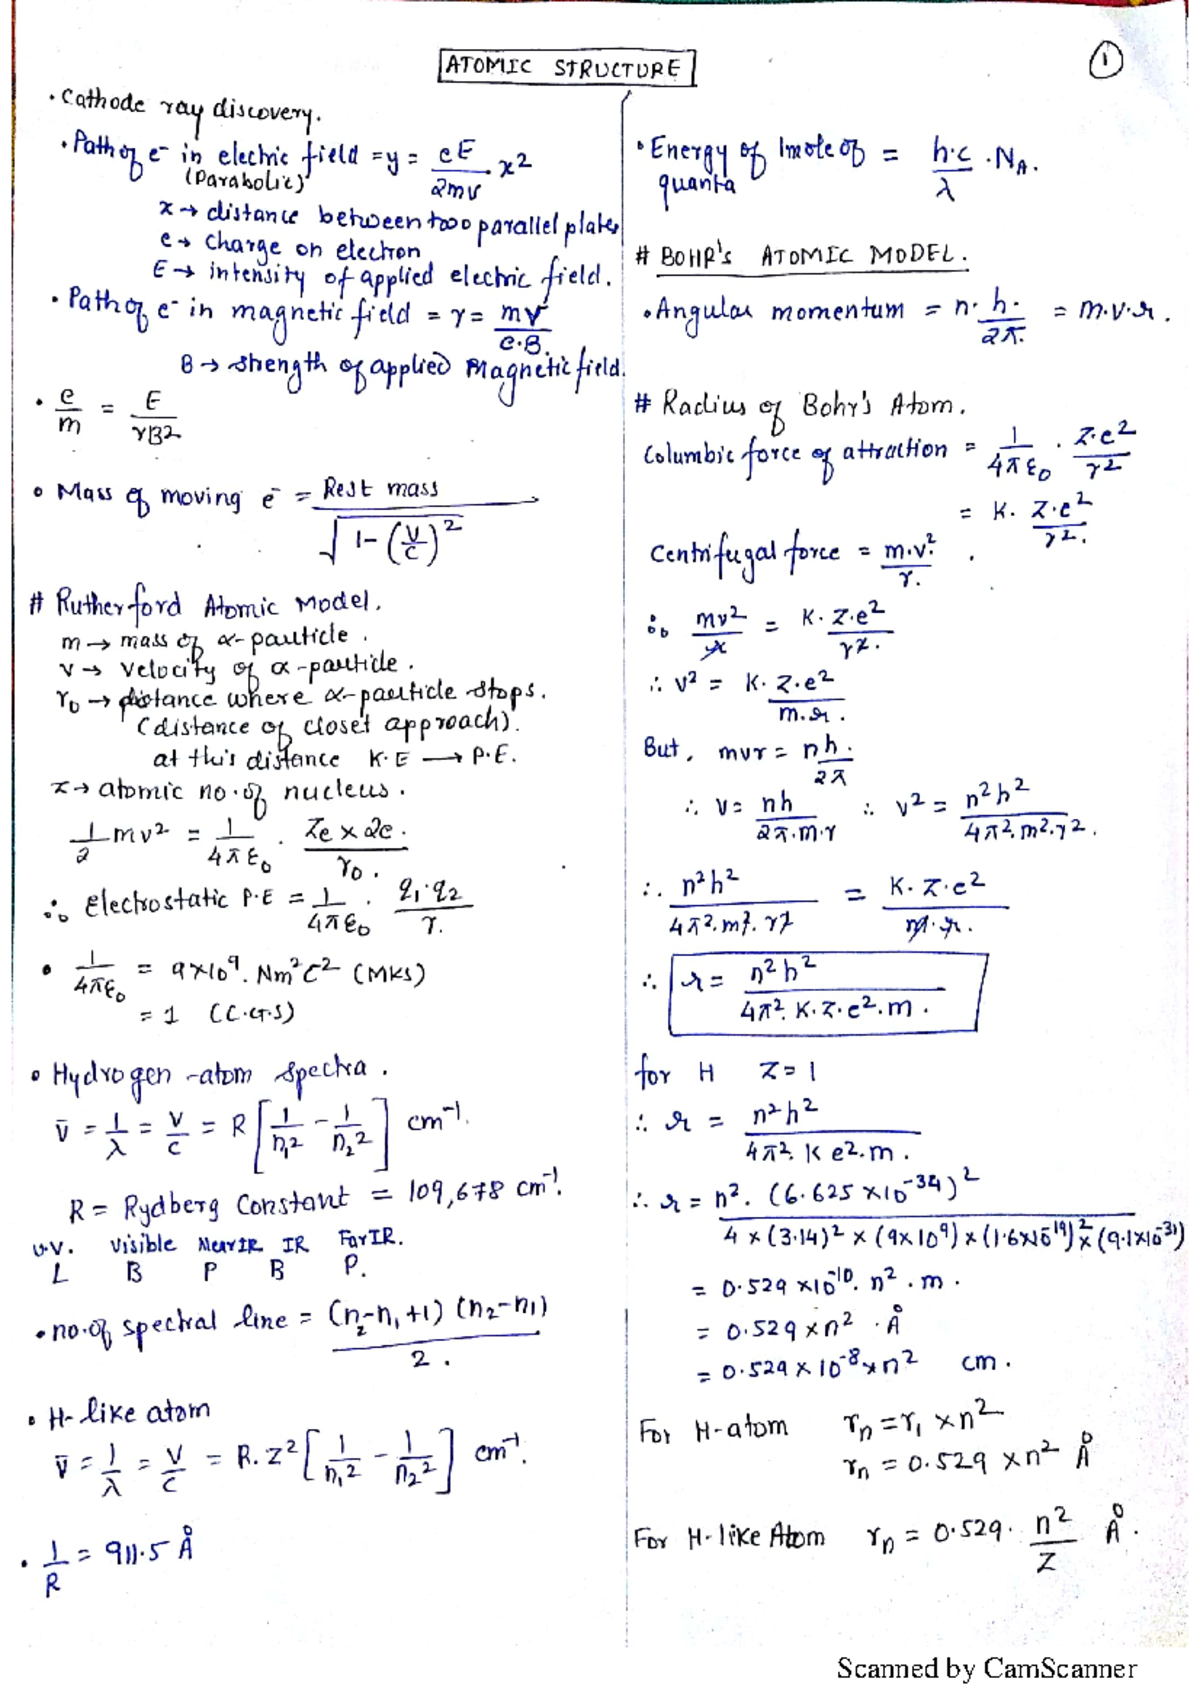 ATOMIC STRUCTURE
1
• Cathode ray discovery.
• Path of e⁻ in electric field = y = eE/2mv . x²
(Parabolic)
x → distance between two parallel plates
e → charge on electron
E → intensity of applied electric field.
• Path of e⁻ in magnetic field = r = mv/e.B.
B → strength of applied Magnetic field.
• e/m = E/rB²
• Mass of moving e⁻ = Rest mass/√(1-(v/c)²)
# Rutherford Atomic Model.
m → mass of α-particle.
v → velocity of α-particle.
r₀ → distance where α-particle stops.
(distance of closet approach).
at this distance K.E → P.E.
z → atomic no. of nucleus.
1/2 mv² = 1/4πε₀ . Ze x 2e./r₀.
∴ Electrostatic P.E = 1/4πε₀ . q₁.q₂/r.
• 1/4πε₀ = 9x10⁹. Nm²C² (MKS)
= 1 (C.G.S)
• Hydrogen -atom spectra.
v̄ = 1/λ = v/c = R [1/n₁² - 1/n₂²] cm⁻¹.
R = Rydberg Constant = 109,678 cm⁻¹.
U.V. Visible Near IR IR Far IR.
L B P B P.
• no. of spectral line = (n₂-n₁+1) (n₂-n₁)/2.
• H-like atom
v̄ = 1/λ = v/c = R.Z² [1/n₁² - 1/n₂²] cm⁻¹.
• 1/R = 911.5 Å
• Energy of 1mole of quanta = h.c/λ . N_A.
# BOHR's ATOMIC MODEL.
• Angular momentum = n. h./2π. = m.v.r.
# Radius of Bohr's Atom.
Columbic force of attraction = 1/4πε₀ . Z.e²/r²
= K. Z.e²/r².
Centrifugal force = m.v²./r.
∴ mv²/r = K. Z.e²/r².
∴ v² = K. Z.e²/m.r.
But, mvr = nh./2π
∴ v = nh/2π.m.r ∴ v² = n²h²/4π².m².r².
∴ n²h²/4π².m².r² = K. Z.e²/m.r.
∴ r = n²h²/4π². K. Z. e². m.
for H Z = 1
∴ r = n²h²/4π². K e². m.
∴ r = n². (6.625 x10⁻³⁴)²/4 x (3.14)² x (9x10⁹) x (1.6x10⁻¹⁹)² x (9.1x10⁻³¹)
= 0.529 x10⁻¹⁰. n² . m.
= 0.529 x n² . Å
= 0.529 x 10⁻⁸ x n² cm.
For H-atom rₙ = r₁ x n²
rₙ = 0.529 x n² Å
For H-like Atom rₙ = 0.529. n²/Z Å.
Scanned by CamScanner